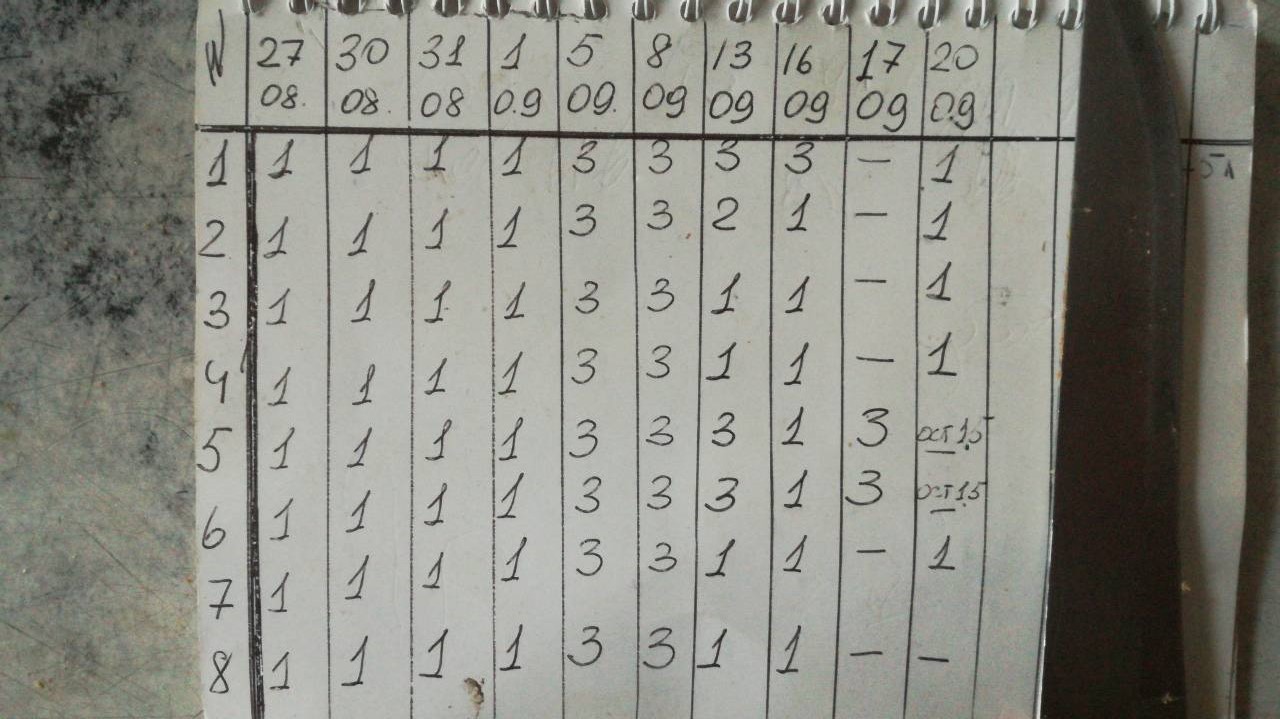 N 27 30 31 1 5 8 13 16 17 20
08. 08. 08 0.9 09. 09 09 09 09 0.9
1 1 1 1 1 3 3 3 3 — 1
2 1 1 1 1 3 3 2 1 — 1
3 1 1 1 1 3 3 1 1 — 1
4 1 1 1 1 3 3 1 1 — 1
5 1 1 1 1 3 3 3 1 3 ост 1.5
6 1 1 1 1 3 3 3 1 3 ост 1.5
7 1 1 1 1 3 3 1 1 — 1
8 1 1 1 1 3 3 1 1 — —